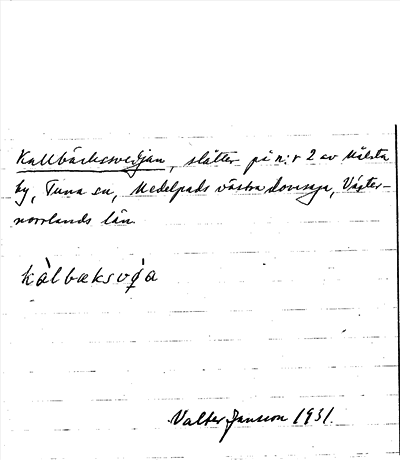 Kallbäcksvedjan, slåtter på n:r 2 av Målsta
by, Tuna sn, Medelpads västra domsaga, Väster-
norrlands län.
kàlbæksvǫ́a
Valter Jansson 1931.